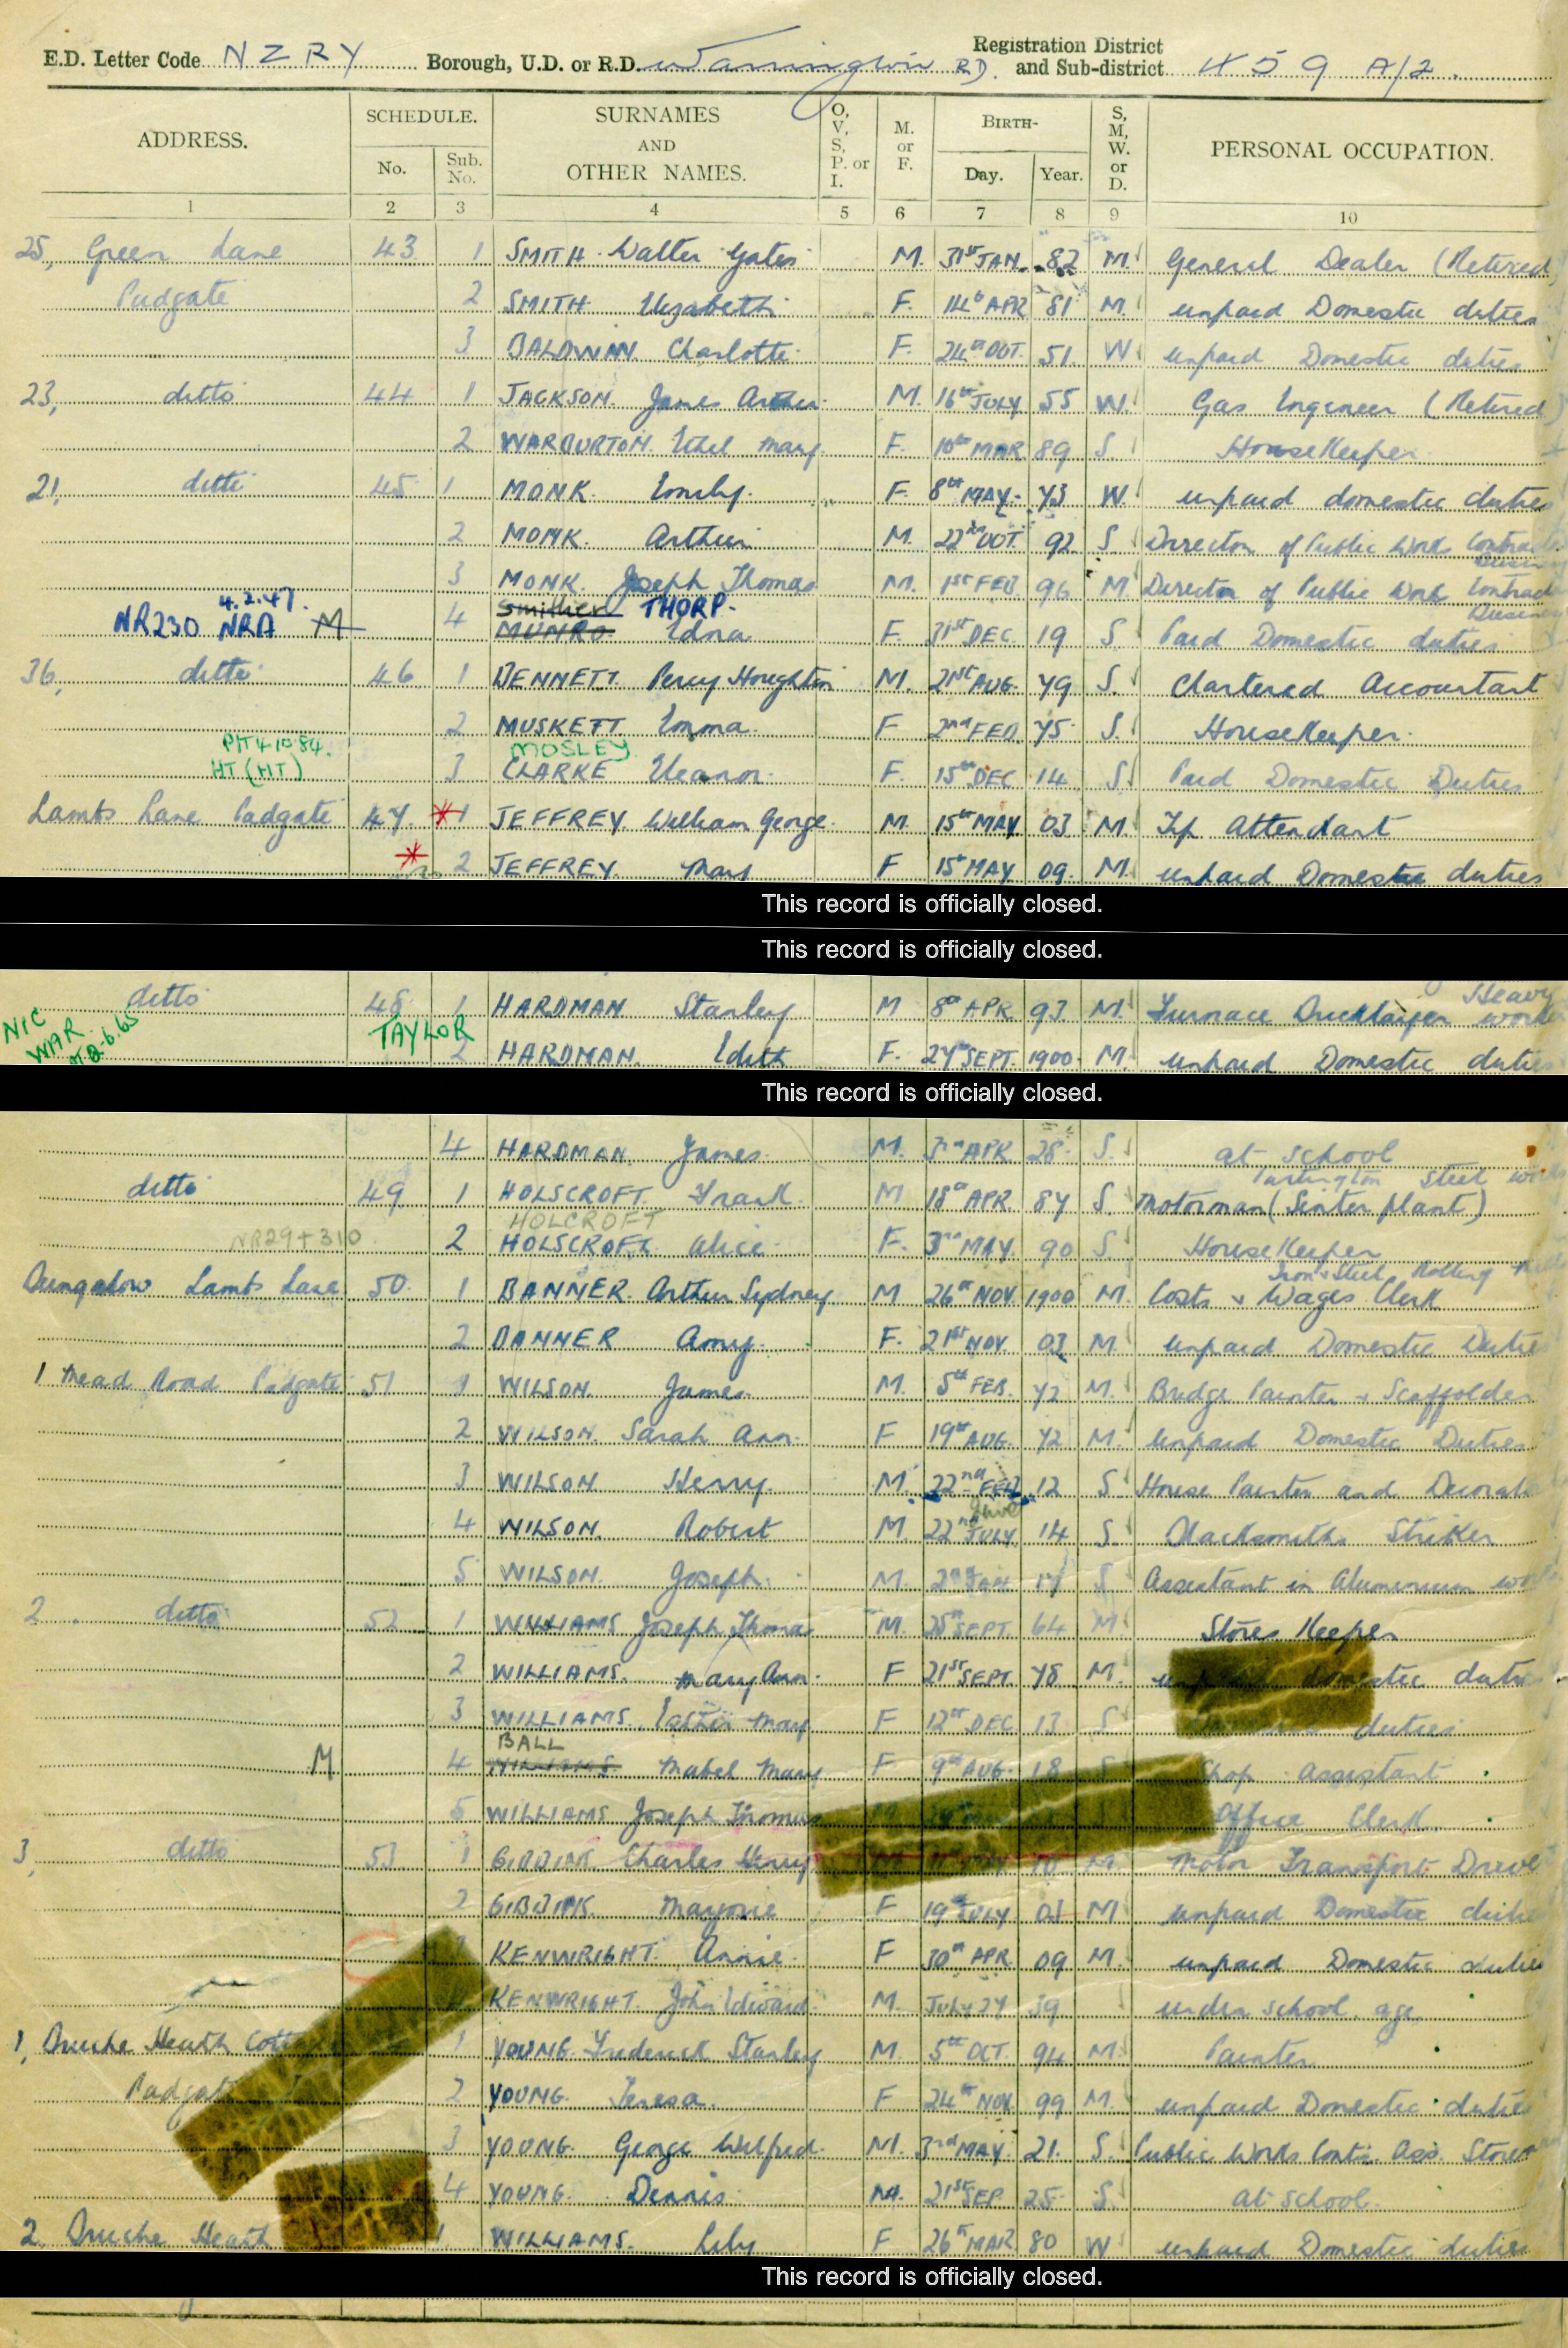 E.D. Letter Code NZRY Borough, U.D. or R.D. Warrington RD. Registration District and Sub-district 459 A/2.
ADDRESS. SCHEDULE. No. Sub. No. SURNAMES AND OTHER NAMES. O, V, S, P. or I. M. or F. BIRTH- Day. Year. S, M, W. or D. PERSONAL OCCUPATION.
1 2 3 4 5 6 7 8 9 10
25, Green Lane 43 1 SMITH Walter Yates M. 31st JAN. 82 M. General Dealer (Retired
Padgate 2 SMITH Elizabeth F. 14th APR 81 M. unpaid Domestic duties
3 BALDWIN Charlotte F. 24th OCT. 51. W unpaid Domestic duties
23, ditto 44 1 JACKSON. James Arthur M. 16th JULY 55 W. Gas Engineer (Retired)
2 WARBURTON. Ethel Mary F. 10th MAR 89 S. HouseKeeper.
21, ditto 45 1 MONK. Emily. F. 8th MAY. 73 W. unpaid domestic duties
2 MONK. Arthur M. 22nd OCT. 92 S. Director of Public Work Contractors
3 MONK. Joseph Thomas M. 1st FEB 96 M Director of Public Work Contractors
4.2.47. Smither THORP.
NR230 NRA M 4 MUNRO Edna F. 31st DEC. 19 S. Paid Domestic duties
36, ditto 46 1 BENNETT. Percy Houghton M. 2nd AUG. 79 S. Chartered Accountant
2 MUSKETT. Emma F 2nd FEB. 75 S. HouseKeeper.
MOSLEY
HT (HT) 3 CLARKE Eleanor F. 15th DEC 14 S Paid Domestic Duties
Lambs Lane Padgate 47 1 JEFFREY William George M. 15th MAY 03 M. Attendant
2 JEFFREY. Mary F 15th MAY. 09. M. unpaid Domestic duties
This record is officially closed.
This record is officially closed.
ditto 48 1 HARDMAN Stanley M 8th APR 93 M. Furnace Bricklayer Heavy worker
NIC WAR 2.6.65 TAYLOR 2 HARDMAN. Edith F. 27th SEPT. 1900 M. unpaid Domestic duties
This record is officially closed.
4 HARDMAN. James M. 3rd APR 28 S. at school
ditto 49 1 HOLSCROFT. Frank M 18th APR. 87 S. Motorman (Sinter plant) Partington Steel works
HOLCROFT
NR29+310 2 HOLSCROFT Alice F. 3rd MAY. 90 S HouseKeeper
Bungalow Lambs Lane 50. 1 BANNER. Arthur Sydney M 26th NOV. 1900 M. Costs & Wages Clerk Iron & Steel Rolling
2 BANNER Amy. F. 21st NOV. 03 M unpaid Domestic Duties
1 Mead Road Padgate 51 1 WILSON. James M. 5th FEB. 72 M. Bridge Painter & Scaffolder
2 WILSON. Sarah Ann. F 19th AUG. 72 M. unpaid Domestic Duties
3 WILSON Henry. M. 22nd FEB 12 S. House Painter and Decorator
June
4 WILSON. Robert M. 22nd JULY. 14 S. Blacksmiths Striker
5 WILSON. Joseph. M. 2nd JAN 17 S Assistant in Aluminium works
2 ditto 52 1 WILLIAMS Joseph Thomas M. 25th SEPT. 64 M. Stores Keeper
2 WILLIAMS. Mary Ann. F 21st SEPT. 78 M. unpaid domestic duties
3 WILLIAMS. Esther May F 12th DEC 13 S duties
BALL
M 4 WILLIAMS Mabel Mary F 9th AUG. 18 S Shop Assistant
5 WILLIAMS Joseph Thomas Office Clerk
3, ditto 53 1 GIBBINK Charles Henry M Motor Transport Driver
2 GIBBINK. Marjorie F 19th JULY 03 M unpaid Domestic duties
KENWRIGHT. Annie. F 30th APR 09 M. unpaid Domestic duties
KENWRIGHT. John Edward M. JULY 27 39 under school age
1, Bruche Heath Cott 1 YOUNG. Frederick Stanley M. 5th OCT. 94 M. Painter
Padgate 2 YOUNG. Teresa. F 24th NOV. 99 M. unpaid Domestic duties
3 YOUNG. George Wilfred. M. 3rd MAY. 21. S. Public Works Contr. Ass. Store
4 YOUNG. Dennis M. 21st SEP. 25 S. at school.
2. Bruche Heath 1 WILLIAMS. Lily F 26th MAR 80 W unpaid Domestic duties
This record is officially closed.